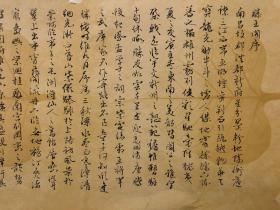 滕王閣序
南昌故郡洪都新府星分翼軫地接衡廬
襟三江而帶五湖控蠻荊而引甌越物華天
寶龍光射牛斗之墟人傑地靈徐孺下陳
蕃之榻雄州霧列俊彩星馳臺隍枕夷
夏之交賓主盡東南之美都督閻公之雅望
棨戟遙臨宇文新州之懿範襜帷暫駐
十旬休暇勝友如雲千里逢迎高朋滿座騰
蛟起鳳孟學士之詞宗紫電清霜王將軍
之武庫家君作宰路出名區童子何知躬逢
勝餞時維九月序屬三秋潦水盡而寒潭清
煙光凝而暮山紫儼驂騑於上路訪風景於
崇阿臨帝子之長洲得仙人之舊館層巒
聳翠上出重霄飛閣流丹下臨無地鶴汀鳧渚
窮島嶼之縈迴桂殿蘭宮列岡巒之體勢